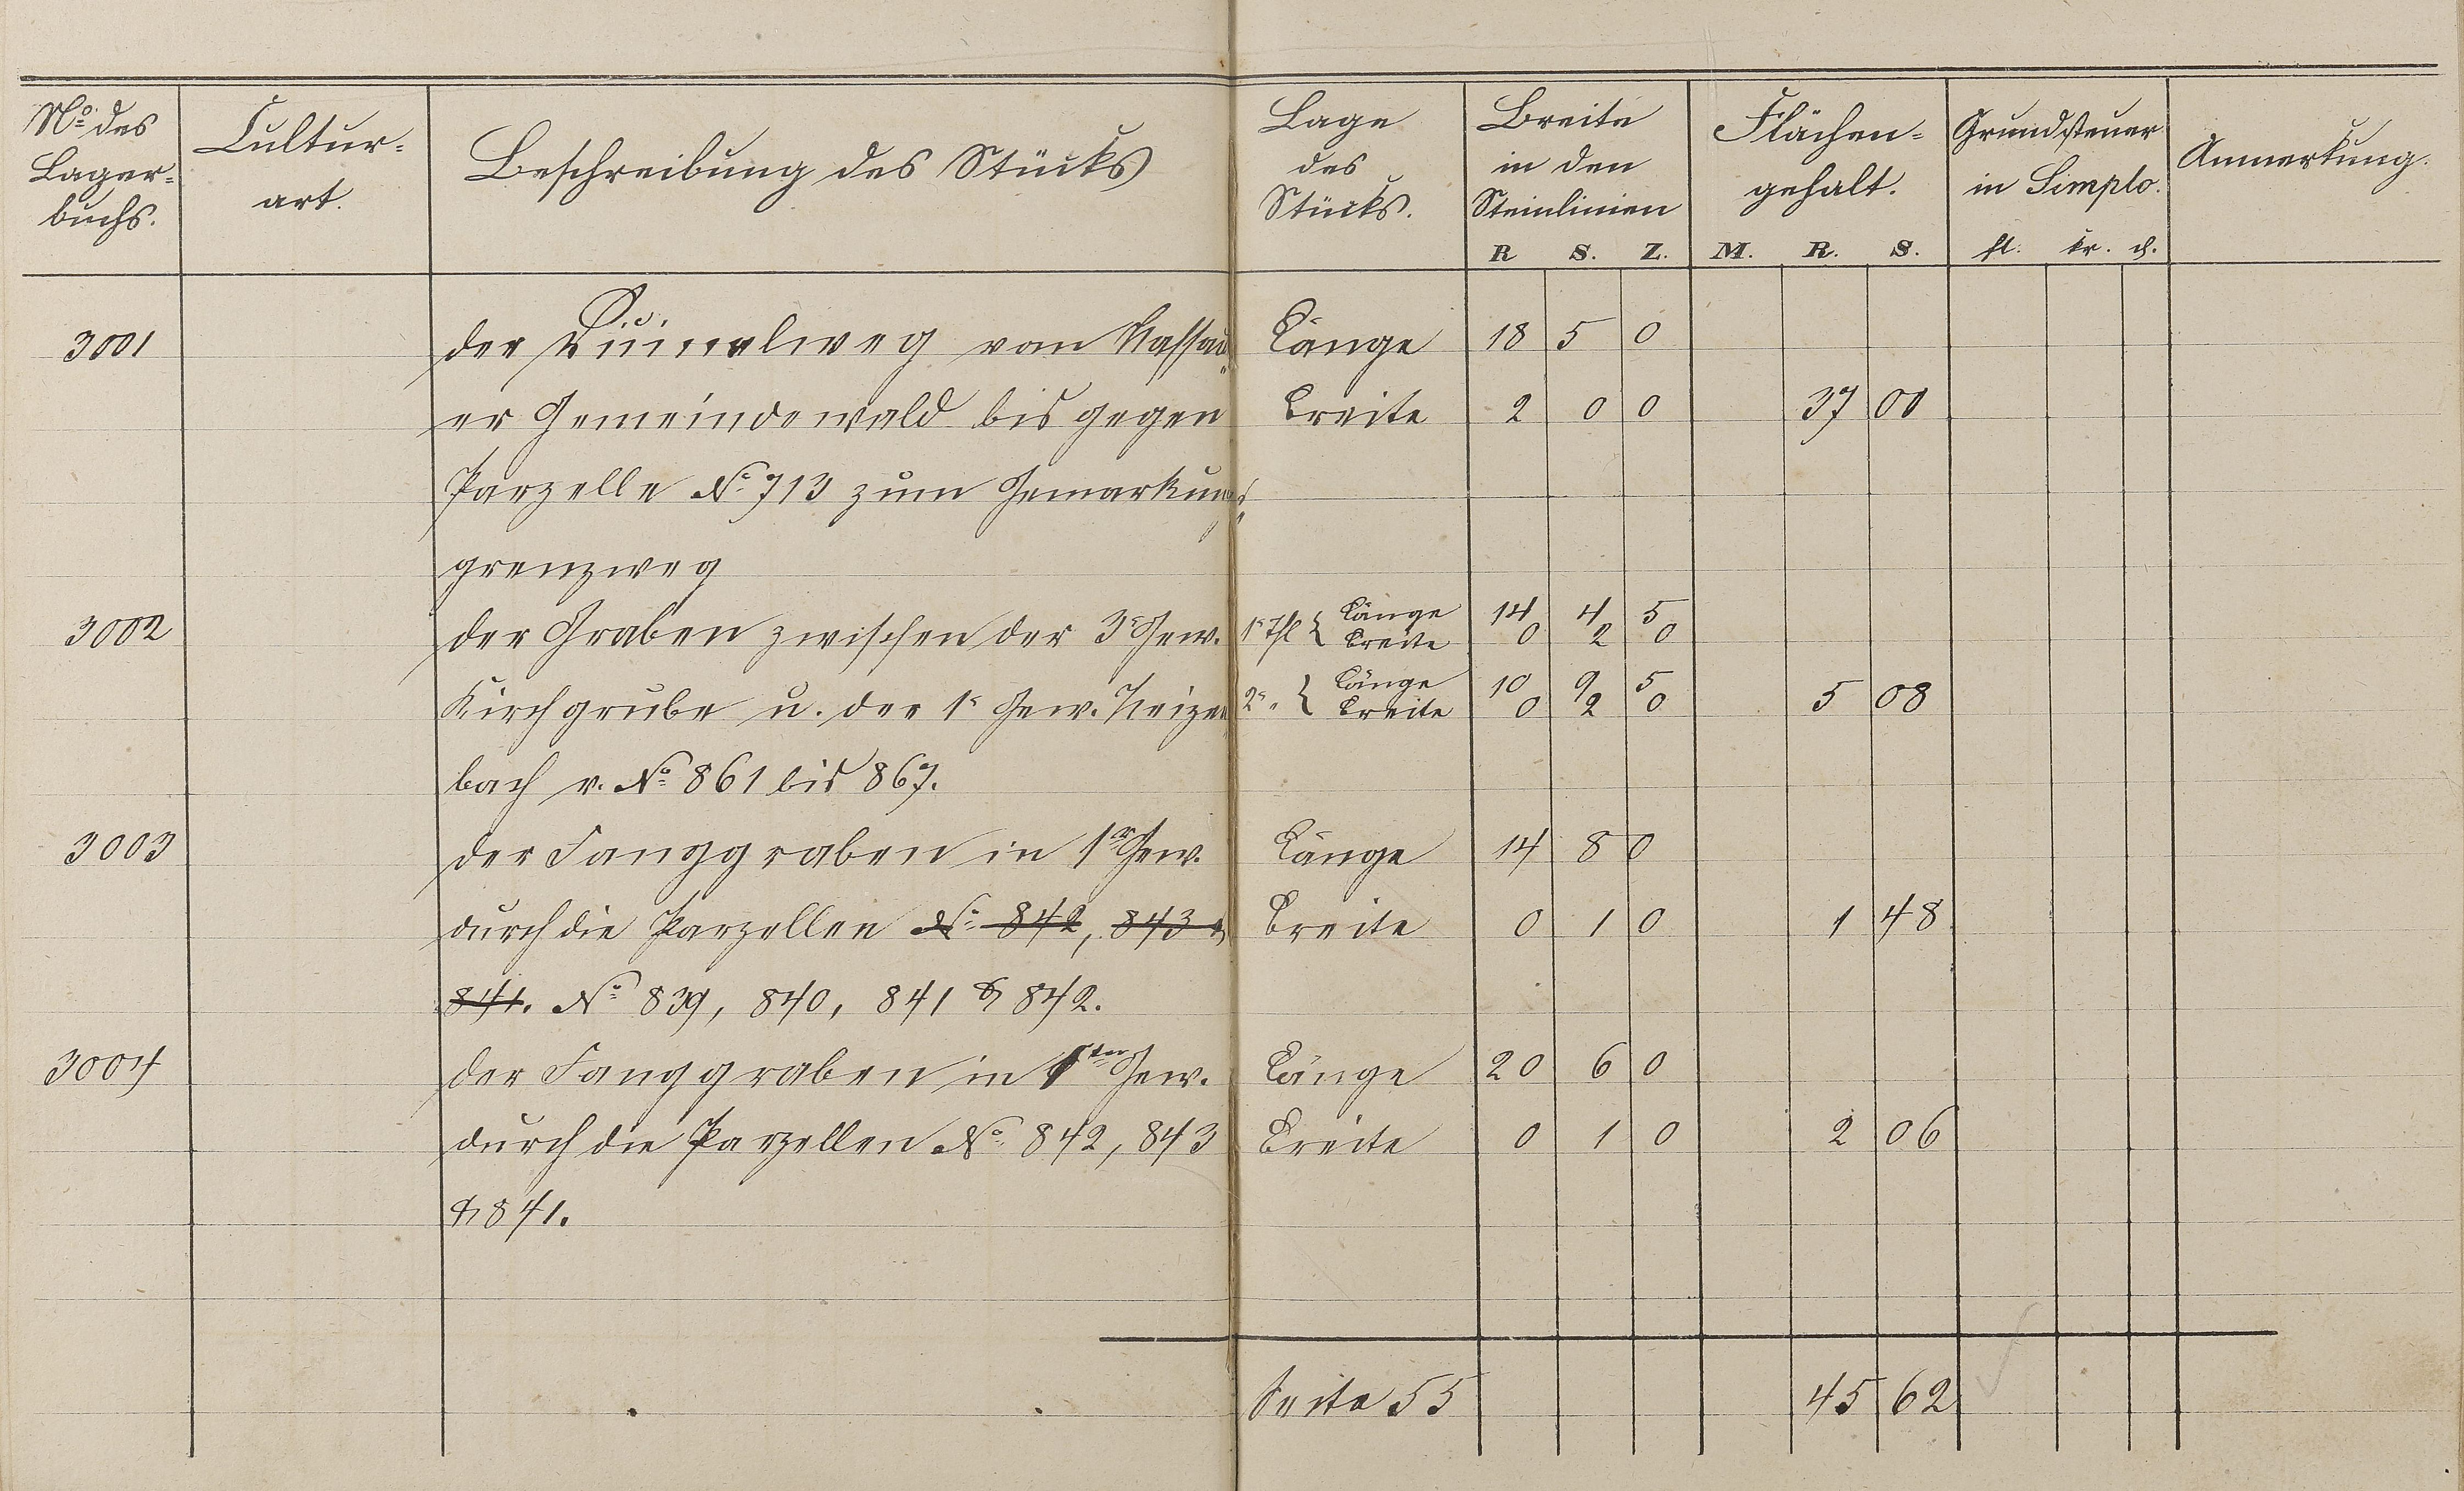 No des Lager=buchs.
Cultur=art.
Beschreibung des Stücks
Lage des Stücks.
Breite in den Steinlinien
R S. Z.
Flächen=gehalt.
M. R. S.
Grundsteuer in Simplo.
fl. kr. d.
Anmerkung.
3001 der weg vom Nassau Länge 18 5 0
er Gemeindewald bis gegen Breite 2 0 0 37 00
Parzelle No 713 zum Gemarkungs
grenzweg
3002 der Graben zwischen der 3r Gew. 1r Thl { Länge 14 4 5
Breite 0 2 0
Kirchgrube u. der 1r Gew. Neizen 2r " { Länge 10 9 5
Breite 0 2 0 5 08
bach v. No 861 bis 867.
3003 der Fanggraben in 1r Gew. Länge 14 8 0
durch die Parzellen No 842, 843 & Breite 0 1 0 1 48
841. No 839, 840, 841 & 842.
3004 der Fanggraben in 1ten Gew. Länge 20 6 0
durch die Parzellen No 842, 843 Breite 0 1 0 2 06
& 841.
Seite 55 45 62